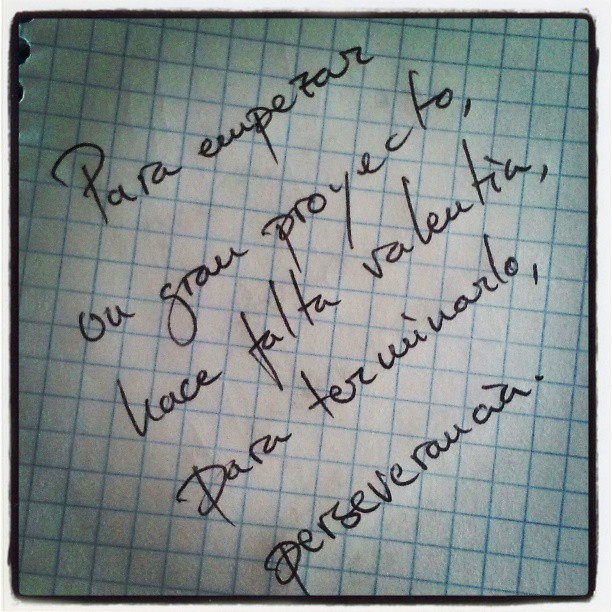 Para empezar
un gran proyecto,
hace falta valentía,
para terminarlo,
perseverancia.